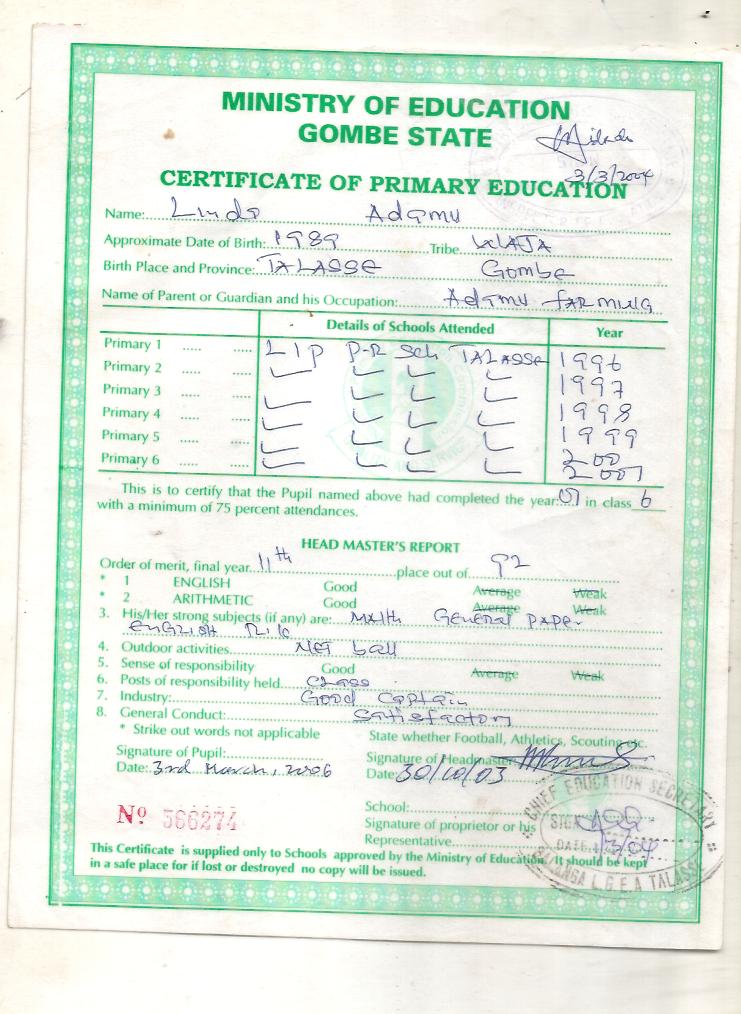 MINISTRY OF EDUCATION
GOMBE STATE
3/3/2004
CERTIFICATE OF PRIMARY EDUCATION
Name: Linda Adamu
Approximate Date of Birth: 1989 Tribe WAJA
Birth Place and Province: TALASSE Gombe
Name of Parent or Guardian and his Occupation: Adamu FARMING
Details of Schools Attended Year
Primary 1 L I P P-R Sch TALASSE 1996
Primary 2 1997
Primary 3 1998
Primary 4 1999
Primary 5 200
Primary 6 2001
This is to certify that the Pupil named above had completed the year: 01 in class 6
with a minimum of 75 percent attendances.
HEAD MASTER'S REPORT
Order of merit, final year 11th place out of 92
* 1 ENGLISH Good Average Weak
* 2 ARITHMETIC Good Average Weak
3. His/Her strong subjects (if any) are: MATH General Paper
ENGLISH
4. Outdoor activities Net ball
5. Sense of responsibility Good Average Weak
6. Posts of responsibility held Class
7. Industry: Good Captain
8. General Conduct: Satisfactory
* Strike out words not applicable State whether Football, Athletics, Scouting etc.
Signature of Pupil: Signature of Headmaster
Date: 3rd March, 2006 Date: 30/10/03
School:
Nº 566274 Signature of proprietor or his
Representative
CHIEF EDUCATION SECRETARY
SIGN
DATE 1/3/04
BALANGA L.G.E.A TALASSE
This Certificate is supplied only to Schools approved by the Ministry of Education. It should be kept
in a safe place for if lost or destroyed no copy will be issued.